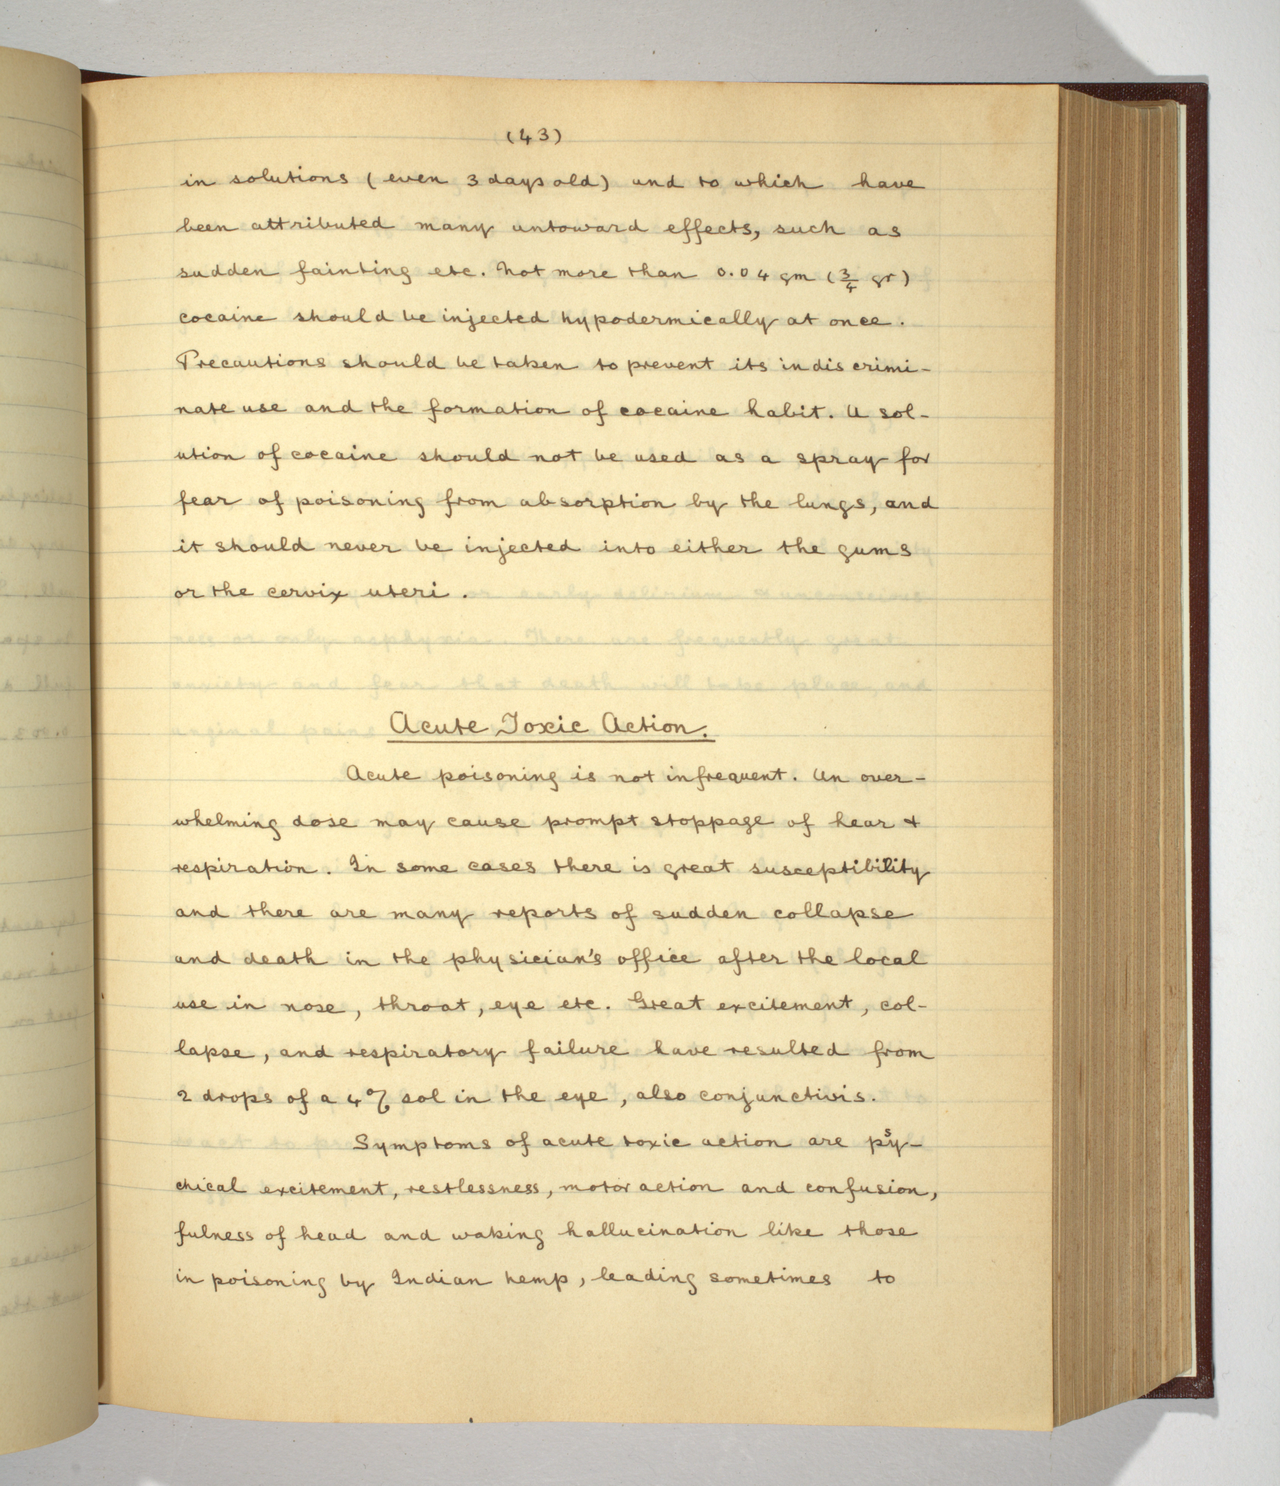 (43)
in solutions (even 3 days old) and to which have
been attributed many untoward effects, such as
sudden fainting etc. Not more than 0.04 gm (3/4 gr)
cocaine should be injected hypodermically at once.
Precautions should be taken to prevent its indiscrimi-
nate use and the formation of cocaine habit. A sol-
ution of cocaine should not be used as a spray for
fear of poisoning from absorption by the lungs, and
it should never be injected into either the gums
or the cervix uteri.
Acute Toxic Action.
Acute poisoning is not infrequent. An over-
whelming dose may cause prompt stoppage of hear +
respiration. In some cases there is great susceptibility
and there are many reports of sudden collapse
and death in the physician's office after the local
use in nose, throat, eye etc. Great excitement, col-
lapse, and respiratory failure have resulted from
2 drops of a 4% sol in the eye, also conjunctivis.
Symptoms of acute toxic action are psy-
chical excitement, restlessness, motor action and confusion,
fulness of head and waking hallucination like those
in poisoning by Indian hemp, leading sometimes to